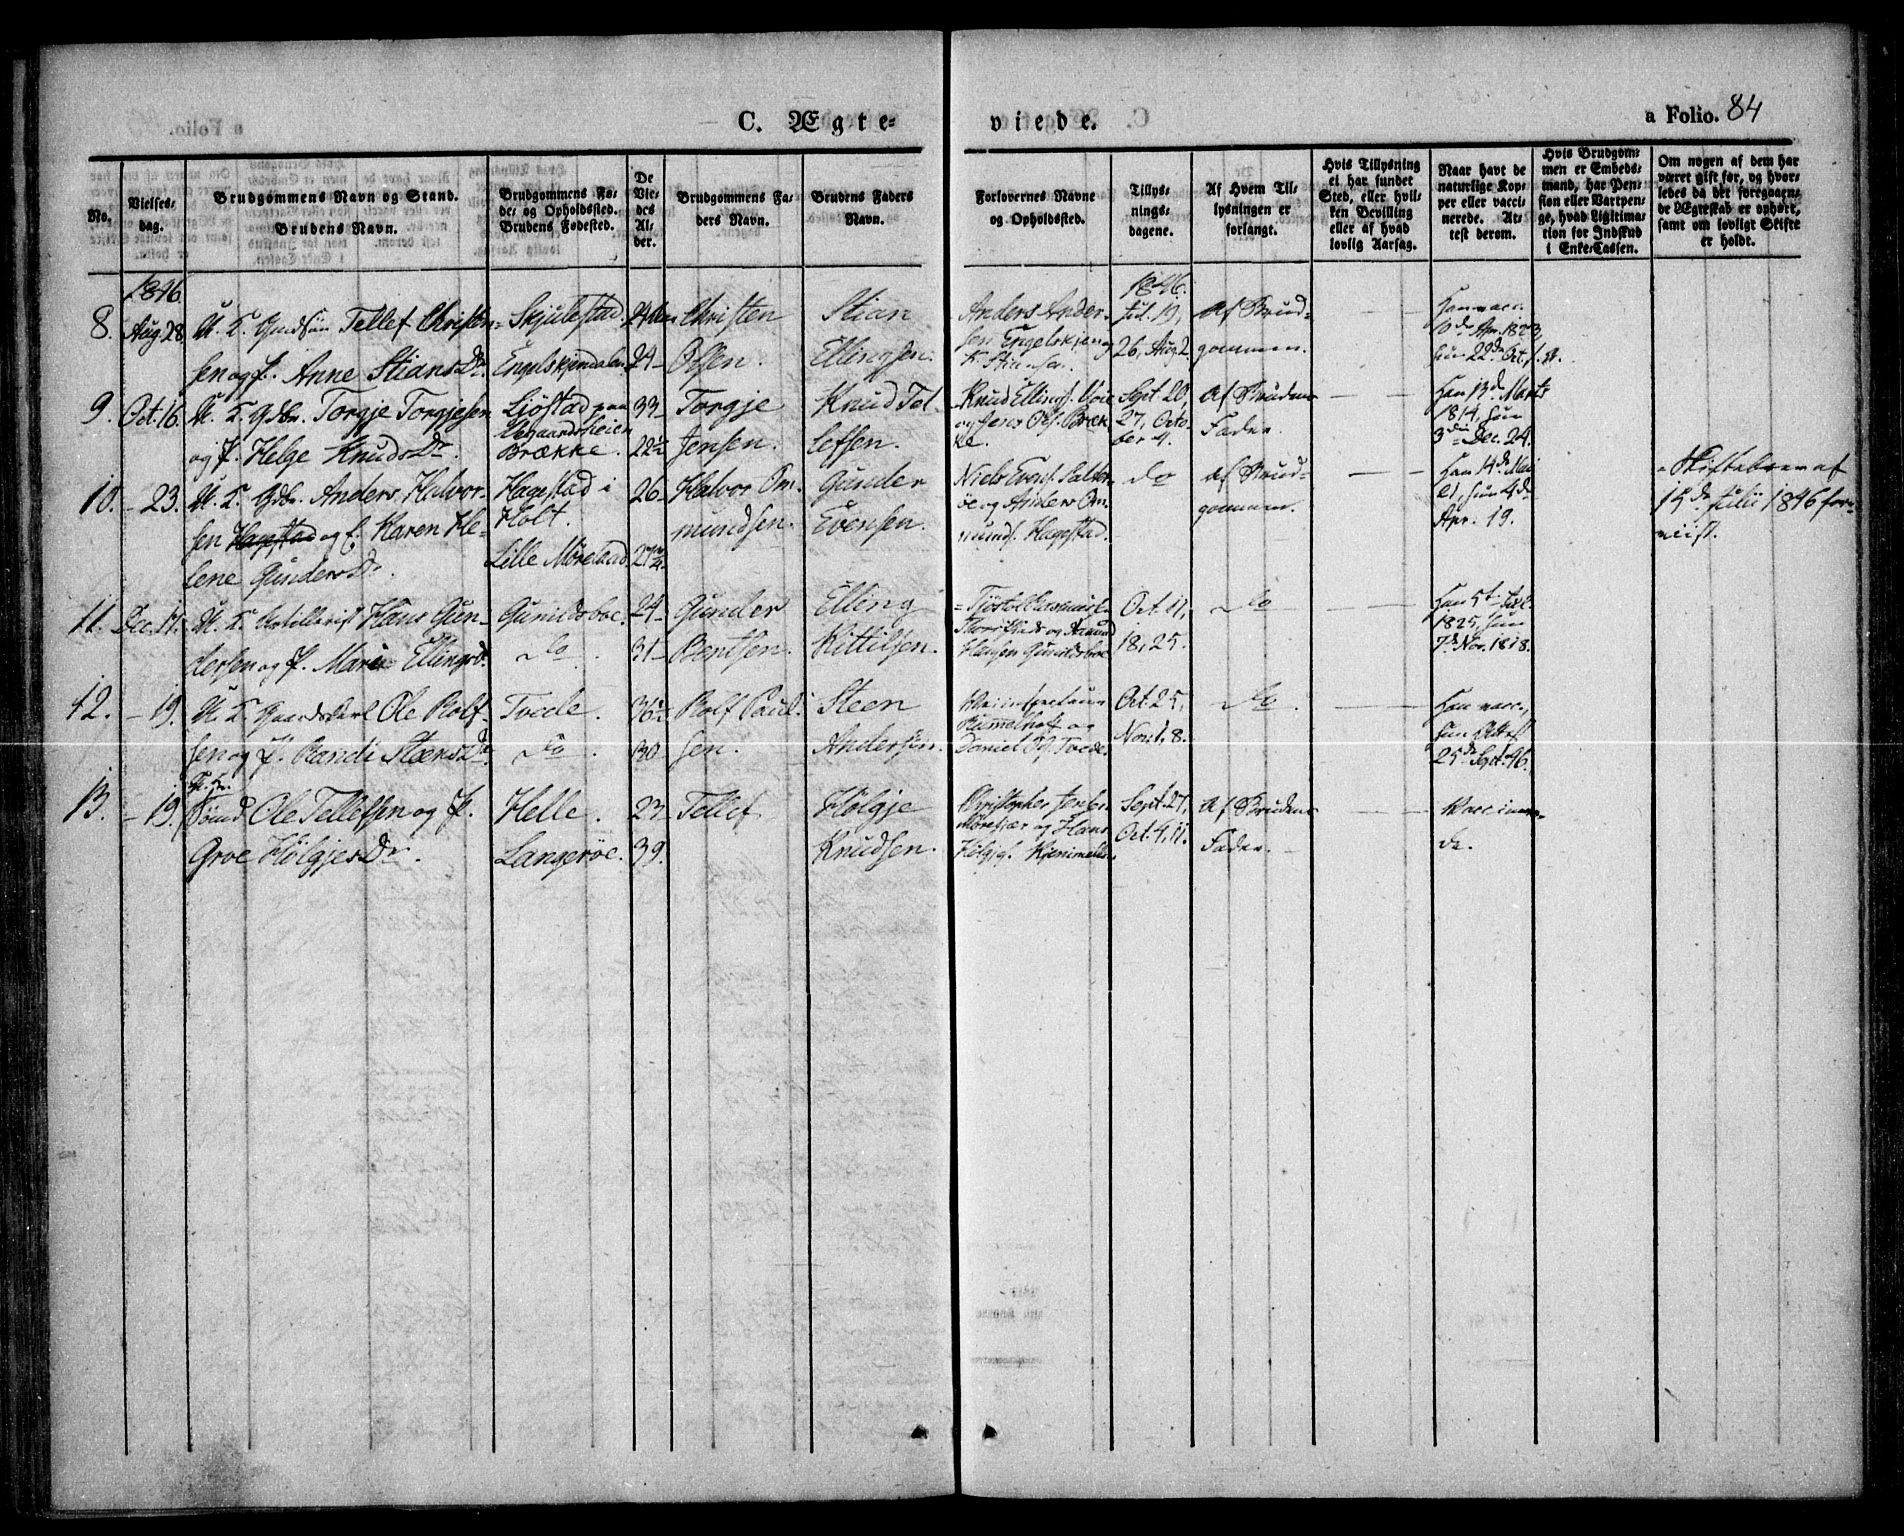 C. Ægte-
viede.
a Folio. 84
No.
Vielses-
dag.
Brudgommens Navn og Stand.
Brudens Navn.
Brudgommens Fø-
de- og Opholdssted.
Brudens Fødested.
De
Vie-
des
Al-
der.
Brudgommens Fa-
ders Navn.
Brudens Faders
Navn.
Forlovernes Navne
og Opholdssted.
Tillys-
nings-
dagene.
Af Hvem Til-
lysningen er
forlangt.
Hvis Tillysning
ei har fundet
Sted, eller hvil-
ken Bevilling
eller af hvad
lovlig Aarsag.
Naar havt de
naturlige Kop-
per eller vacci-
nerede. At-
test derom.
Hvis Brudgom-
men er Embeds-
mand, har Pen-
sion eller Vartpen-
ge, hvad Ligitima-
tion for Indskud
i Enke-Cassen.
Om nogen af dem har
været gift før, og hvor-
ledes da det foregaaen-
de Ægteskab er ophørt,
samt om lovligt Skifte
er holdt.
1846.
8. Aug. 28. U. K. Tellef Christen-
sen og P. Anne Stians Dr.
Skjulestad.
Engelskjøndalen
24
Christen
Olsen.
Stian
Ellingsen.
Anders Ander-
sen
1846.
Jul. 19,
26, Aug. 2.
Af Brud-
gommen.
Han vacc.
10de Apr. 1823,
hun 22de Oct.
9. Oct. 16. U. K. Gdbr. Torgje Torgjesen
og P. Helge Knuds Dr.
Ljøstad paa
Brække.
33
22½
Torgje
Jensen.
Knud Tel-
lefsen.
Knud Ellings. Voie
og Jens Ols. Bræk-
ke.
Sept. 20,
27, Octo-
ber 4.
Af Brudens
Fader.
Han 13de Marts
1814, hun
3die Dec. 24.
10. - 23. U. K. Gdbr. Anders Halvor-
sen Hagestad og E. Karen He-
lene Gunders Dr.
Hagestad i
Holt.
Lille Mørestad
26
Halvor Om-
mundsen.
Gunder
Evensen.
Niels Evens.
øe og Anders Om-
munds. Hagestad.
do
Af Brud-
gommen.
Han 14de Mai
21, hun 4de
Apr. 19.
Skiftebrev af
15de Julii 1846 fore-
viist.
11. Dec. 17. U. K. Artillerist Hans Gun-
dersen og P. Maria Ellingsd.
Gunildsboe.
do
24
31
Gunder
Bentsen.
Elling
Kittilsen.
Hansen Gunildsboe
Oct. 11,
18, 25.
do
Han 5te Jul.
1825, hun
7de Nov. 1818.
12. - 19. U. K. Gaardskarl Ole Rolf-
sen og P. Randi Steens Dr.
Tvede.
do
36½
30
Rolf Paul-
sen.
Steen
Andersen.
Rummelhof og
Daniel Ols. Tvede.
Oct. 25,
Nov. 1, 8.
do
Han vacc.,
hun Attest
25de Sept. 46.
13. - 19. Sømd Ole Tellefsen og P.
Groe Holgjes Dr.
Helle.
Langerøe.
23
39.
Tellef
Holgje
Knudsen.
Christopher Jens.
Morefjær og Hans
Holgjes.
Sept. 27,
Oct. 4, 11.
Af Brudens
Fader.
Vaccinere-
de.